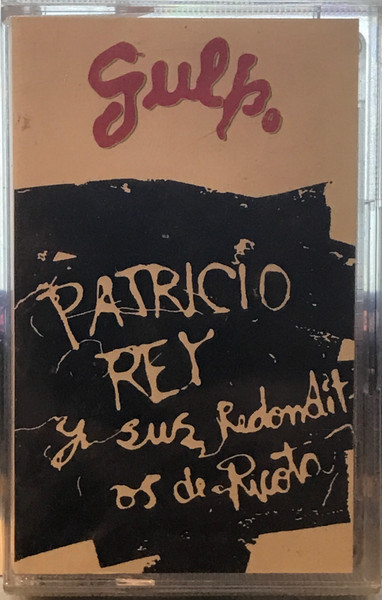 Gulp.
PATRICIO
REY
y sus Redondit-
os de Ricota